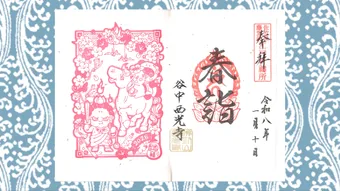 奉拝
春詣
谷中西光寺
令和八年
一月十日